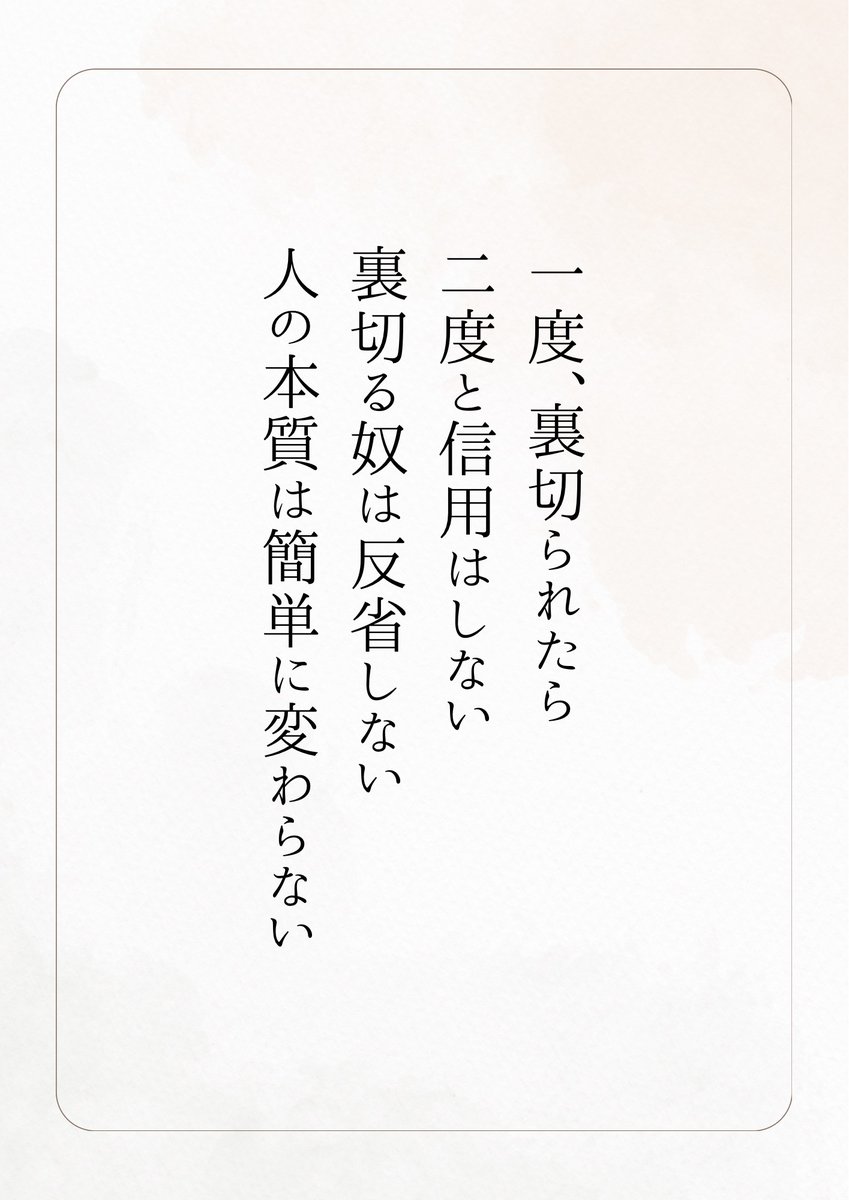 一度、裏切られたら
二度と信用はしない
裏切る奴は反省しない
人の本質は簡単に変わらない